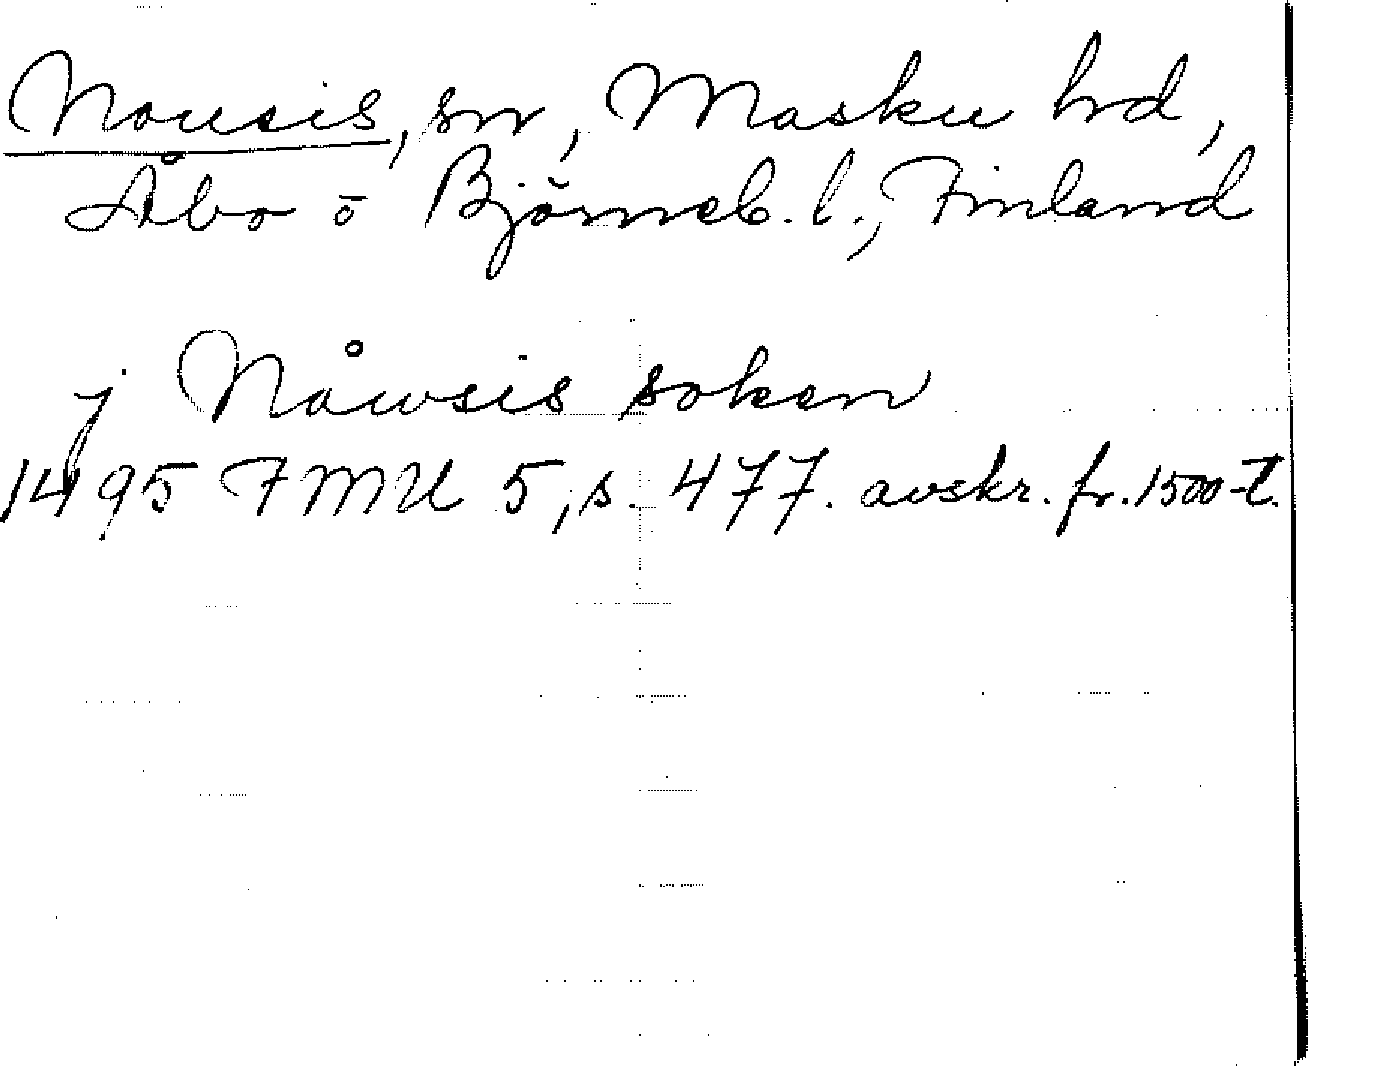 Nousis, sn, Masku hrd,
Åbo o Björneb. l., Finland
j Nåwsis soken
1495 FMU 5, s. 477. avskr. fr. 1500-t.